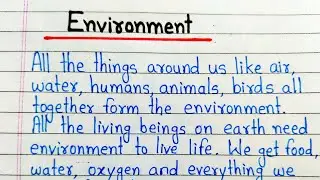 Environment
All the things around us like air,
water, humans, animals, birds all
together form the environment.
All the living beings on earth need
environment to live life. We get food,
water, oxygen and everything we